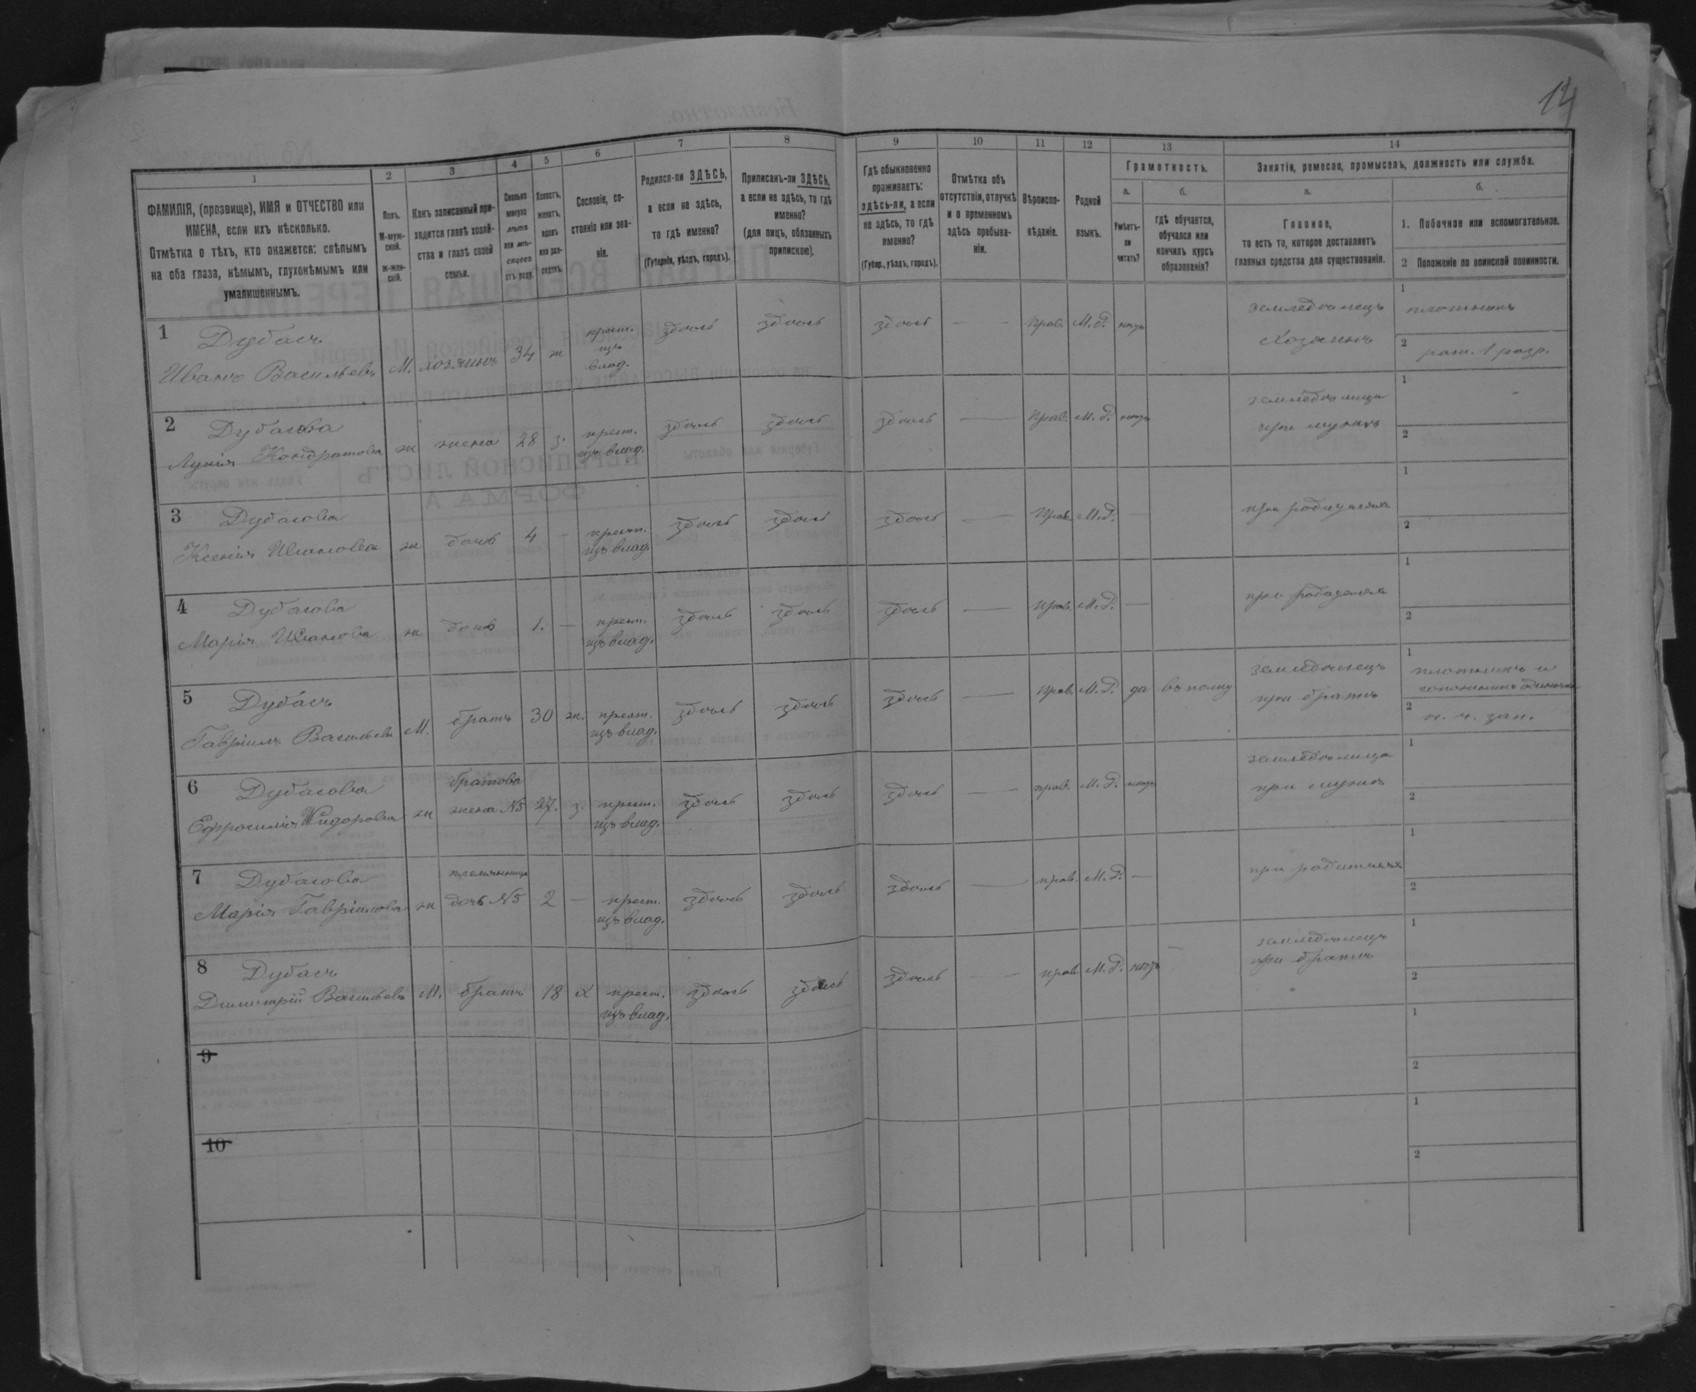 14
1
2
3
4
5
6
7
8
9
10
11
12
13
14
ФАМИЛІЯ, (прозвище), ИМЯ и ОТЧЕСТВО или
ИМЕНА, если ихъ нѣсколько.
Отмѣтка о тѣхъ, кто окажется: слѣпымъ
на оба глаза, нѣмымъ, глухонѣмымъ или
умалишеннымъ.
Полъ.
М-муж-
ской.
Ж-жен-
скій.
Какъ записанный при-
ходится главѣ хозяй-
ства и главѣ своей
семьи.
Сколько
минуло
лѣтъ
или мѣ-
сяцевъ
отъ роду.
Холостъ,
женатъ,
вдовъ
или раз-
веденъ.
Сословіе, со-
стояніе или зва-
ніе.
Родился-ли ЗДѢСЬ,
а если не здѣсь,
то гдѣ именно?
(Губернія, уѣздъ, городъ).
Приписанъ-ли ЗДѢСЬ,
а если не здѣсь, то гдѣ
именно?
(для лицъ, обязанныхъ
припискою).
Гдѣ обыкновенно
проживаетъ:
здѣсь-ли, а если
не здѣсь, то гдѣ
именно?
(Губер., уѣздъ, городъ).
Отмѣтка объ
отсутствіи, отлучкѣ
и о временномъ
здѣсь пребыва-
ніи.
Вѣроиспо-
вѣданіе.
Родной
языкъ.
Грамотность.
а.
б.
Умѣетъ-
ли
читать?
гдѣ обучается,
обучался или
кончилъ курсъ
образованія?
Занятіе, ремесло, промыселъ, должность или служба.
а.
б.
Главное,
то есть то, которое доставляетъ
главныя средства для существованія.
1. Побочное или вспомогательное.
2 Положеніе по воинской повинности.
1
Дубасъ
Иванъ Васильевъ
М.
хозяинъ
34
ж
крест.
изъ
влад.
здѣсь
здѣсь
здѣсь
— —
Прав.
М.Р.
нѣтъ
земледѣлецъ
Хозяинъ
1
плотникъ
2
рат. 1 разр.
2
Дубасова
Лукія Кондратова
ж
жена
28
з.
крест.
изъ влад.
здѣсь
здѣсь
здѣсь
—
Прав.
М.Р.
нѣтъ
земледѣлица
при мужѣ
1
2
3
Дубасова
Ксенія Иванова
ж
дочь
4
—
крест.
изъ влад.
здѣсь
здѣсь
здѣсь
—
Прав.
М.Р.
—
при родителяхъ
1
2
4
Дубасова
Марія Иванова
ж
дочь
1.
—
крест.
изъ влад.
здѣсь
здѣсь
здѣсь
—
Прав.
М.Р.
—
при родителяхъ
1
2
5
Дубасъ
Гавріилъ Васильевъ
М.
братъ
30
ж.
крест.
изъ влад.
здѣсь
здѣсь
здѣсь
—
Прав.
М.Р.
да
въ полку
земледѣлецъ
при братѣ
1
плотникъ и
2
н. ч. зап.
6
Дубасова
Ефросинія Сидорова
ж
братова
жена №5
27.
з.
крест.
изъ влад.
здѣсь
здѣсь
здѣсь
—
прав.
М.Р.
нѣтъ
земледѣлица
при мужѣ
1
2
7
Дубасова
Марія Гавріилова
ж
племянница
дочь №5
2
—
крест.
изъ влад.
здѣсь
здѣсь
здѣсь
—
прав.
М.Р.
—
при родителяхъ
1
2
8
Дубасъ
Димитрій Васильевъ
М.
братъ
18
х
крест.
изъ влад.
здѣсь
здѣсь
здѣсь
— —
прав.
М.Р.
нѣтъ
—
земледѣлецъ
при братѣ
1
2
9
1
2
10
1
2